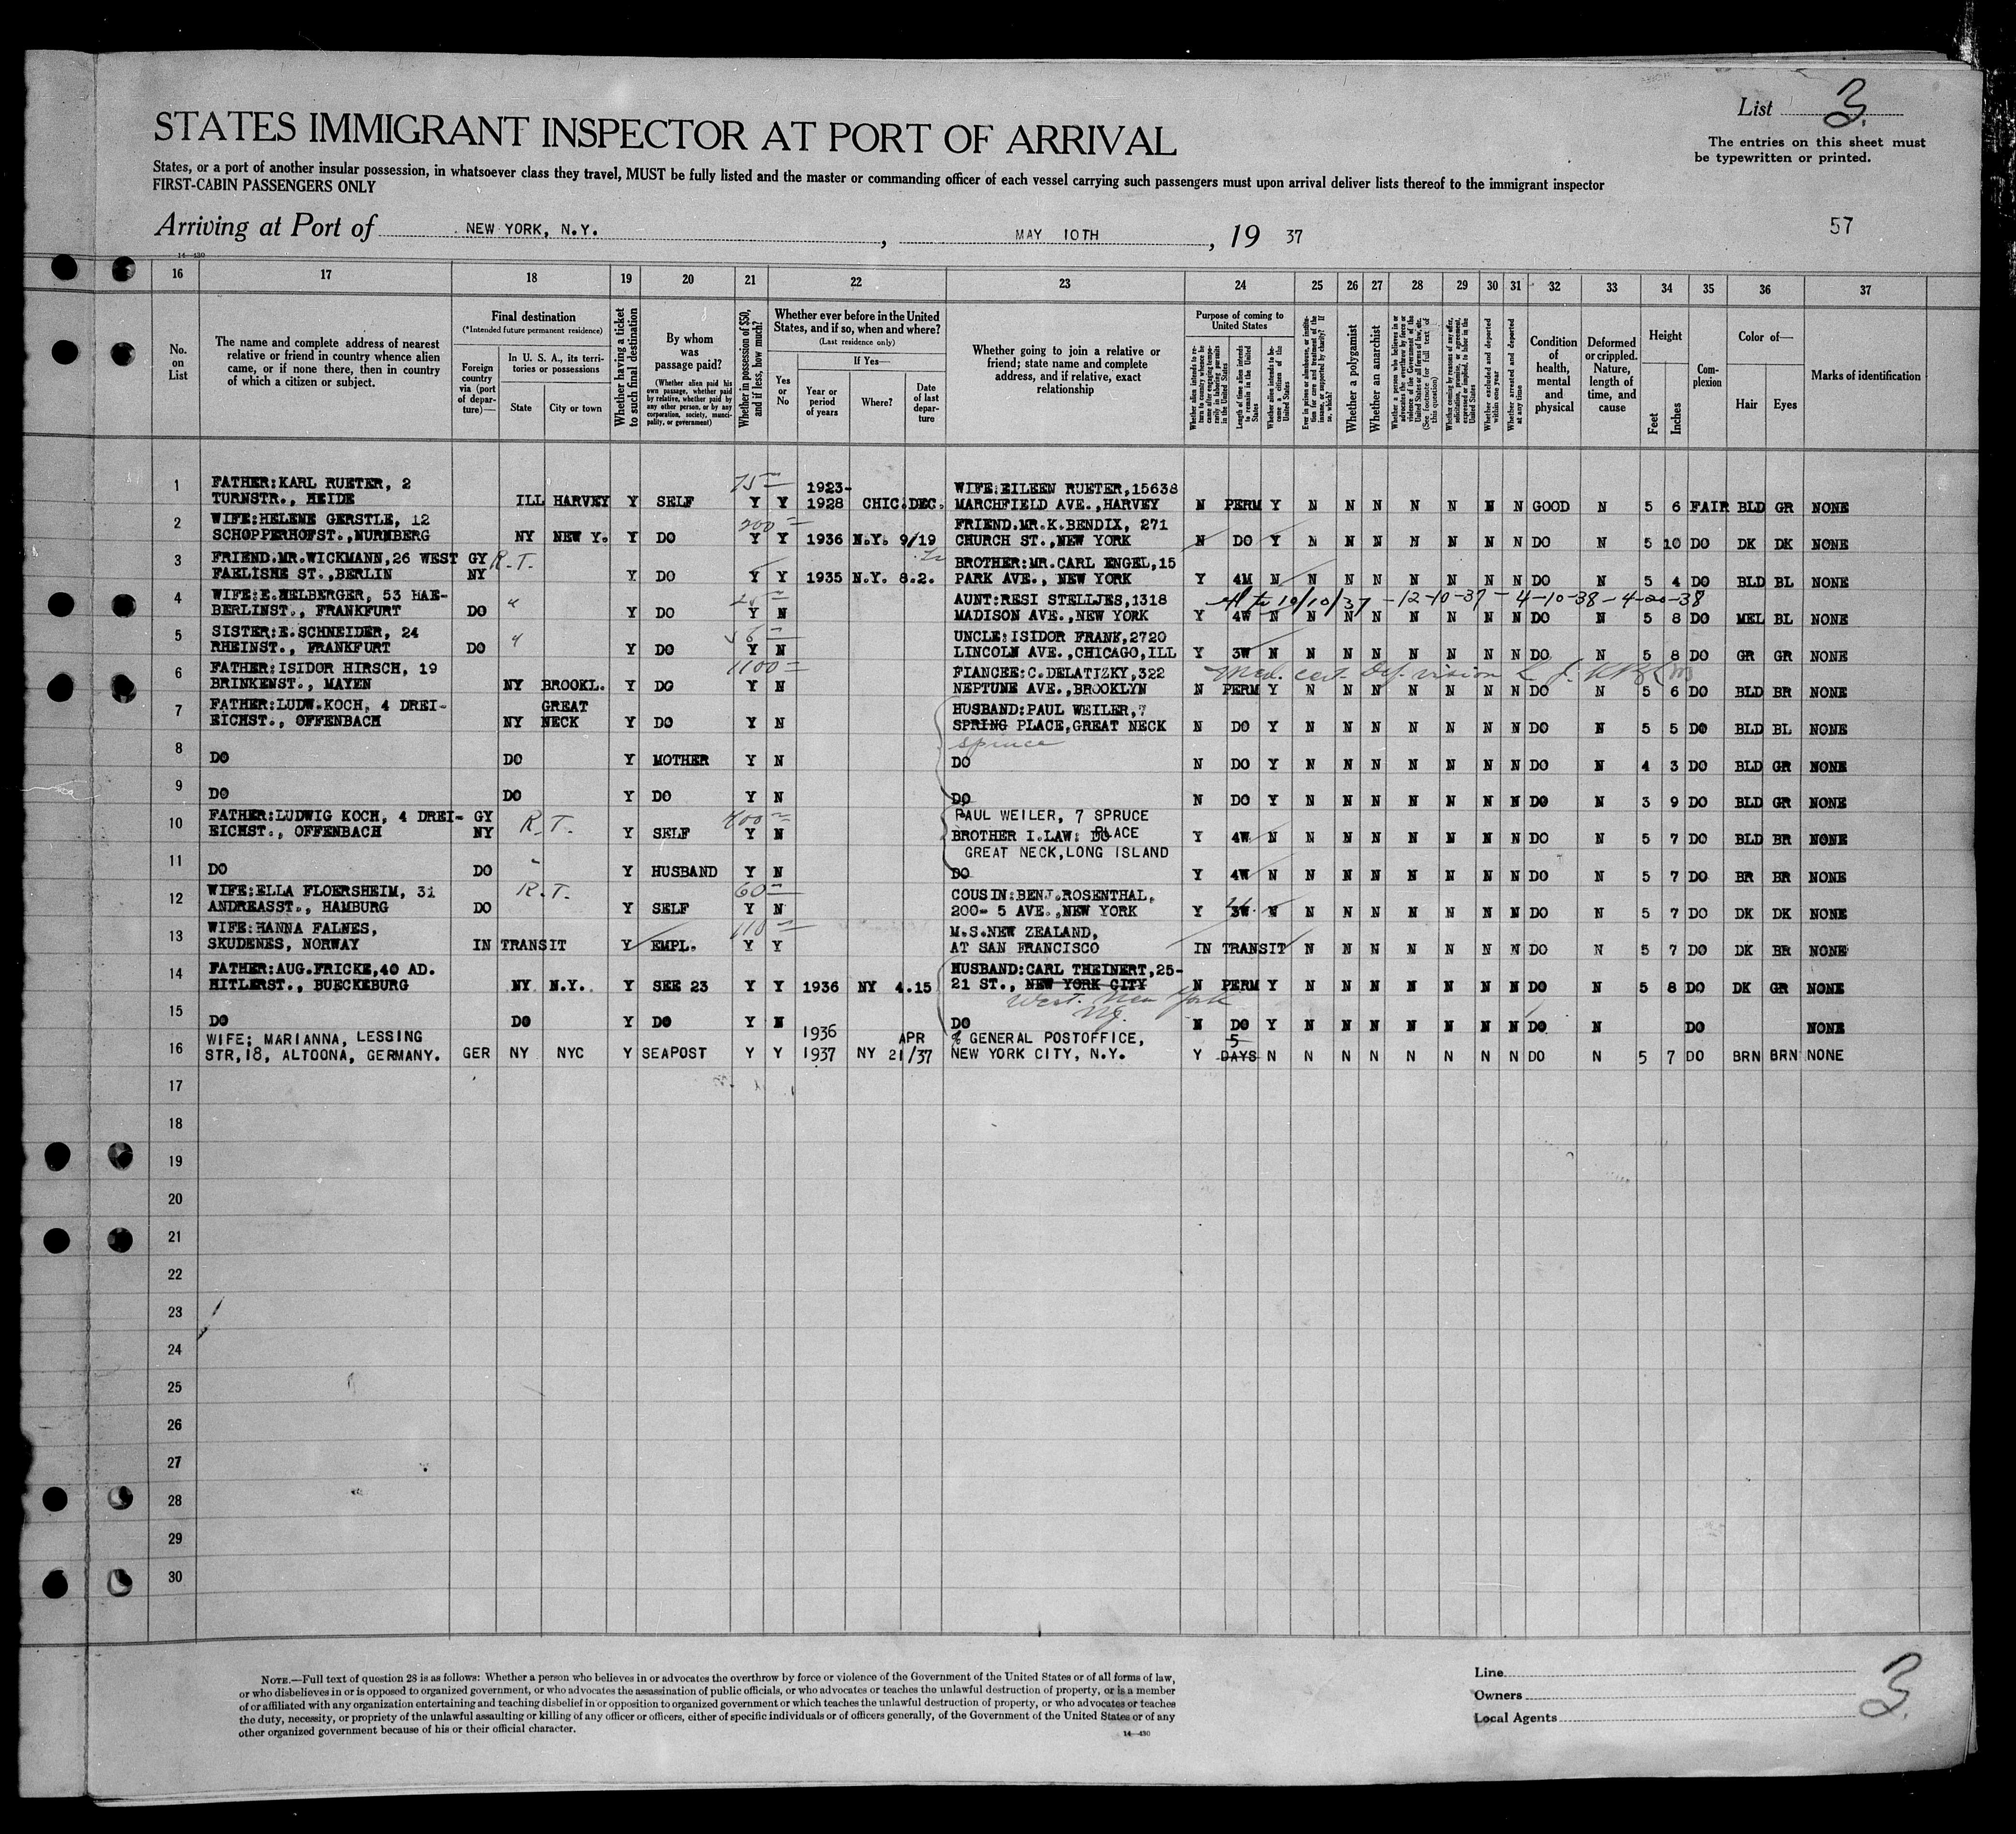 List 3.
STATES IMMIGRANT INSPECTOR AT PORT OF ARRIVAL
The entries on this sheet must
be typewritten or printed.
States, or a port of another insular possession, in whatsoever class they travel, MUST be fully listed and the master or commanding officer of each vessel carrying such passengers must upon arrival deliver lists thereof to the immigrant inspector
FIRST-CABIN PASSENGERS ONLY
Arriving at Port of NEW YORK, N.Y. , MAY 10TH , 19 37
57
14—430
16 17 18 19 20 21 22 23 24 25 26 27 28 29 30 31 32 33 34 35 36 37
No. on List
The name and complete address of nearest relative or friend in country whence alien came, or if none there, then in country of which a citizen or subject.
Final destination
(*Intended future permanent residence)
Foreign country via (port of departure)—
In U. S. A., its territories or possessions
State
City or town
Whether having a ticket to such final destination
By whom was passage paid?
(Whether alien paid his own passage, whether paid by relative, whether paid by any other person, or by any corporation, society, municipality, or government)
Whether in possession of $50, and if less, how much?
Whether ever before in the United States, and if so, when and where?
(Last residence only)
Yes or No
If Yes—
Year or period of years
Where?
Date of last departure
Whether going to join a relative or friend; state name and complete address, and if relative, exact relationship
Purpose of coming to United States
Whether alien intends to return to country whence he came after engaging temporarily in laboring pursuits in the United States
Length of time alien intends to remain in the United States
Whether alien intends to become a citizen of the United States
Ever in prison or almshouse, or institution for care and treatment of the insane, or supported by charity? If so, which?
Whether a polygamist
Whether an anarchist
Whether a person who believes in or advocates the overthrow by force or violence of the Government of the United States or all forms of law, etc. (See footnote for full text of this question)
Whether coming by reasons of any offer, solicitation, promise, or agreement, expressed or implied, to labor in the United States
Whether excluded and deported within one year
Whether arrested and deported at any time
Condition of health, mental and physical
Deformed or crippled. Nature, length of time, and cause
Height
Feet
Inches
Complexion
Color of—
Hair
Eyes
Marks of identification
75
1 FATHER:KARL RUETER, 2 1923- WIFE:EILEEN RUETER,15638
TURNSTR., HEIDE ILL HARVEY Y SELF Y Y 1928 CHIC. DEC. MARCHFIELD AVE.,HARVEY N PERM Y N N N N N N N GOOD N 5 6 FAIR BLD GR NONE
200
2 WIFE:HELENE GERSTLE, 12 FRIEND.MR.K.BENDIX, 271
SCHOPPERHOFST.,NURNBERG NY NEW Y. Y DO Y Y 1936 N.Y. 9/19 CHURCH ST.,NEW YORK N DO Y N N N N N N N DO N 5 10 DO DK DK NONE
3 FRIEND.MR.WICKMANN,26 WEST GY R.T. BROTHER:MR.CARL ENGEL,15
FAELISHE ST.,BERLIN NY Y DO Y Y 1935 N.Y. 8.2. PARK AVE., NEW YORK Y 4M N N N N N N N N DO N 5 4 DO BLD BL NONE
4 WIFE:E.HELBERGER, 53 HAE- " AUNT:RESI STELLJES,1318 to 10/10/37 -12-10-37 - 4-10-38 - 4-20-38
BERLINST., FRANKFURT DO Y DO Y N MADISON AVE.,NEW YORK Y 4W N N N N N N N N DO N 5 8 DO MEL BL NONE
5 SISTER:E.SCHNEIDER, 24 " 56 UNCLE:ISIDOR FRANK,2720
RHEINST., FRANKFURT DO Y DO Y N LINCOLN AVE.,CHICAGO,ILL Y 3W N N N N N N N N DO N 5 8 DO GR GR NONE
1100
6 FATHER:ISIDOR HIRSCH, 19 FIANCEE:C.DELATIZKY,322 Med. cert. Def. vision
BRINKENST., MAYEN NY BROOKL. Y DO Y N NEPTUNE AVE.,BROOKLYN N PERM Y N N N N N N N DO N 5 6 DO BLD BR NONE
7 FATHER:LUDW.KOCH, 4 DREI- GREAT HUSBAND:PAUL WEILER,7
EICHST., OFFENBACH NY NECK Y DO Y N SPRING PLACE,GREAT NECK N DO Y N N N N N N N DO N 5 5 DO BLD BL NONE
spruce
8 DO DO Y MOTHER Y N DO N DO Y N N N N N N N DO N 4 3 DO BLD GR NONE
9 DO DO Y DO Y N DO N DO Y N N N N N N N DO N 3 9 DO BLD GR NONE
10 FATHER:LUDWIG KOCH, 4 DREI- GY R.T. 400 PAUL WEILER, 7 SPRUCE
EICHST., OFFENBACH NY Y SELF Y N BROTHER I.LAW: DO PLACE Y 4W N N N N N N N N DO N 5 7 DO BLD BR NONE
GREAT NECK,LONG ISLAND
11 DO DO " Y HUSBAND Y N DO Y 4W N N N N N N N N DO N 5 7 DO BR BR NONE
12 WIFE:ELLA FLOERSHEIM, 31 R.T. 60 COUSIN:BENJ.ROSENTHAL,
ANDREASST., HAMBURG DO Y SELF Y N 200- 5 AVE.,NEW YORK Y 3W N N N N N N N N DO N 5 7 DO DK DK NONE
110
13 WIFE:HANNA FALNES, M.S.NEW ZEALAND,
SKUDENES, NORWAY IN TRANSIT Y EMPL. Y Y AT SAN FRANCISCO IN TRANSIT N N N N N N N DO N 5 7 DO DK BR NONE
14 FATHER:AUG.FRICKE,40 AD. HUSBAND:CARL THEINERT,25-
HITLERST., BUECKEBURG NY N.Y. Y SEE 23 Y Y 1936 NY 4.15 21 ST., NEW YORK CITY N PERM Y N N N N N N N DO N 5 8 DO DK GR NONE
West. New York
NJ.
15 DO DO Y DO Y N DO N DO Y N N N N N N N DO N DO NONE
16 WIFE; MARIANNA, LESSING 1936 APR % GENERAL POSTOFFICE, 5
STR,18, ALTOONA, GERMANY. GER NY NYC Y SEAPOST Y Y 1937 NY 21/37 NEW YORK CITY, N.Y. Y DAYS N N N N N N N N DO N 5 7 DO BRN BRN NONE
17
18
19
20
21
22
23
24
25
26
27
28
29
30
NOTE.—Full text of question 28 is as follows: Whether a person who believes in or advocates the overthrow by force or violence of the Government of the United States or of all forms of law,
or who disbelieves in or is opposed to organized government, or who advocates the assassination of public officials, or who advocates or teaches the unlawful destruction of property, or is a member
of or affiliated with any organization entertaining and teaching disbelief in or opposition to organized government or which teaches the unlawful destruction of property, or who advocates or teaches
the duty, necessity, or propriety of the unlawful assaulting or killing of any officer or officers, either of specific individuals or of officers generally, of the Government of the United States or of any
other organized government because of his or their official character.
14—430
Line
Owners
Local Agents
3.